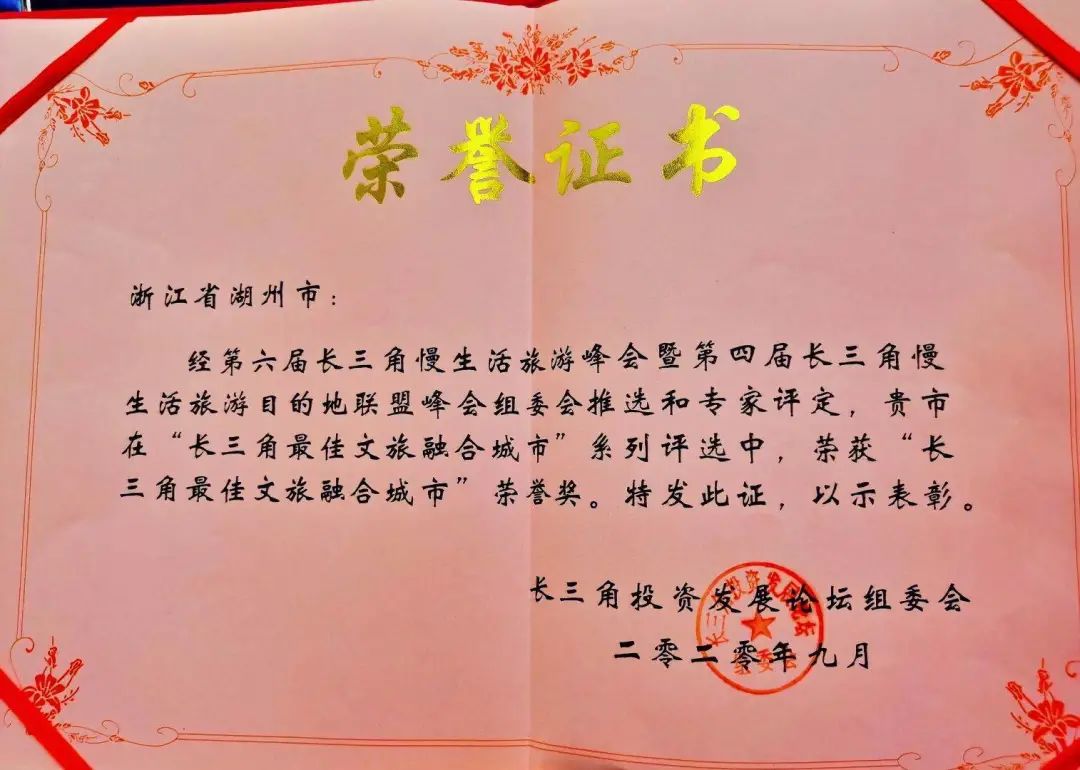 荣誉证书
浙江省湖州市：
经第六届长三角慢生活旅游峰会暨第四届长三角慢
生活旅游目的地联盟峰会组委会推选和专家评定，贵市
在“长三角最佳文旅融合城市”系列评选中，荣获“长
三角最佳文旅融合城市”荣誉奖。特发此证，以示表彰。
长三角投资发展论坛组委会
二零二零年九月
长三角投资发展论坛
组委会